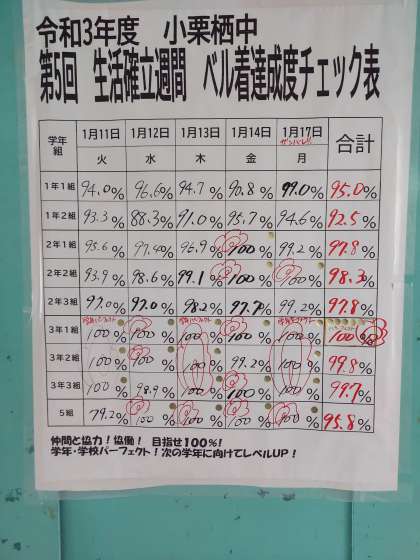 令和3年度 小栗栖中
第5回 生活確立週間 ベル着達成度チェック表
学年組 1月11日 火 1月12日 水 1月13日 木 1月14日 金 1月17日 月 合計
1年1組 94.0% 96.6% 94.7% 90.8% 99.0% 95.0%
1年2組 93.3% 88.3% 91.0% 95.7% 94.6% 92.5%
2年1組 95.6% 97.4% 96.9% 100% 99.2% 97.8%
2年2組 93.9% 98.6% 99.1% 100% 100% 98.3%
2年3組 97.0% 97.0% 98.2% 97.7% 99.2% 97.8%
3年1組 100% 100% 100% 100% 100% 100%
3年2組 100% 100% 100% 99.2% 100% 99.8%
3年3組 100% 98.9% 100% 100% 100% 99.7%
5組 79.2% 100% 100% 100% 100% 95.8%
仲間と協力！協働！ 目指せ100%！
学年・学校パーフェクト！次の学年に向けてレベルUP！